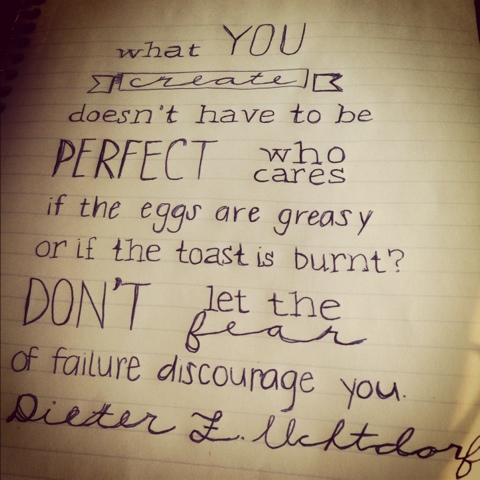 what YOU
create
doesn't have to be
PERFECT who
cares
if the eggs are greasy
or if the toast is burnt?
DON'T let the
fear
of failure discourage you.
Dieter F. Uchtdorf